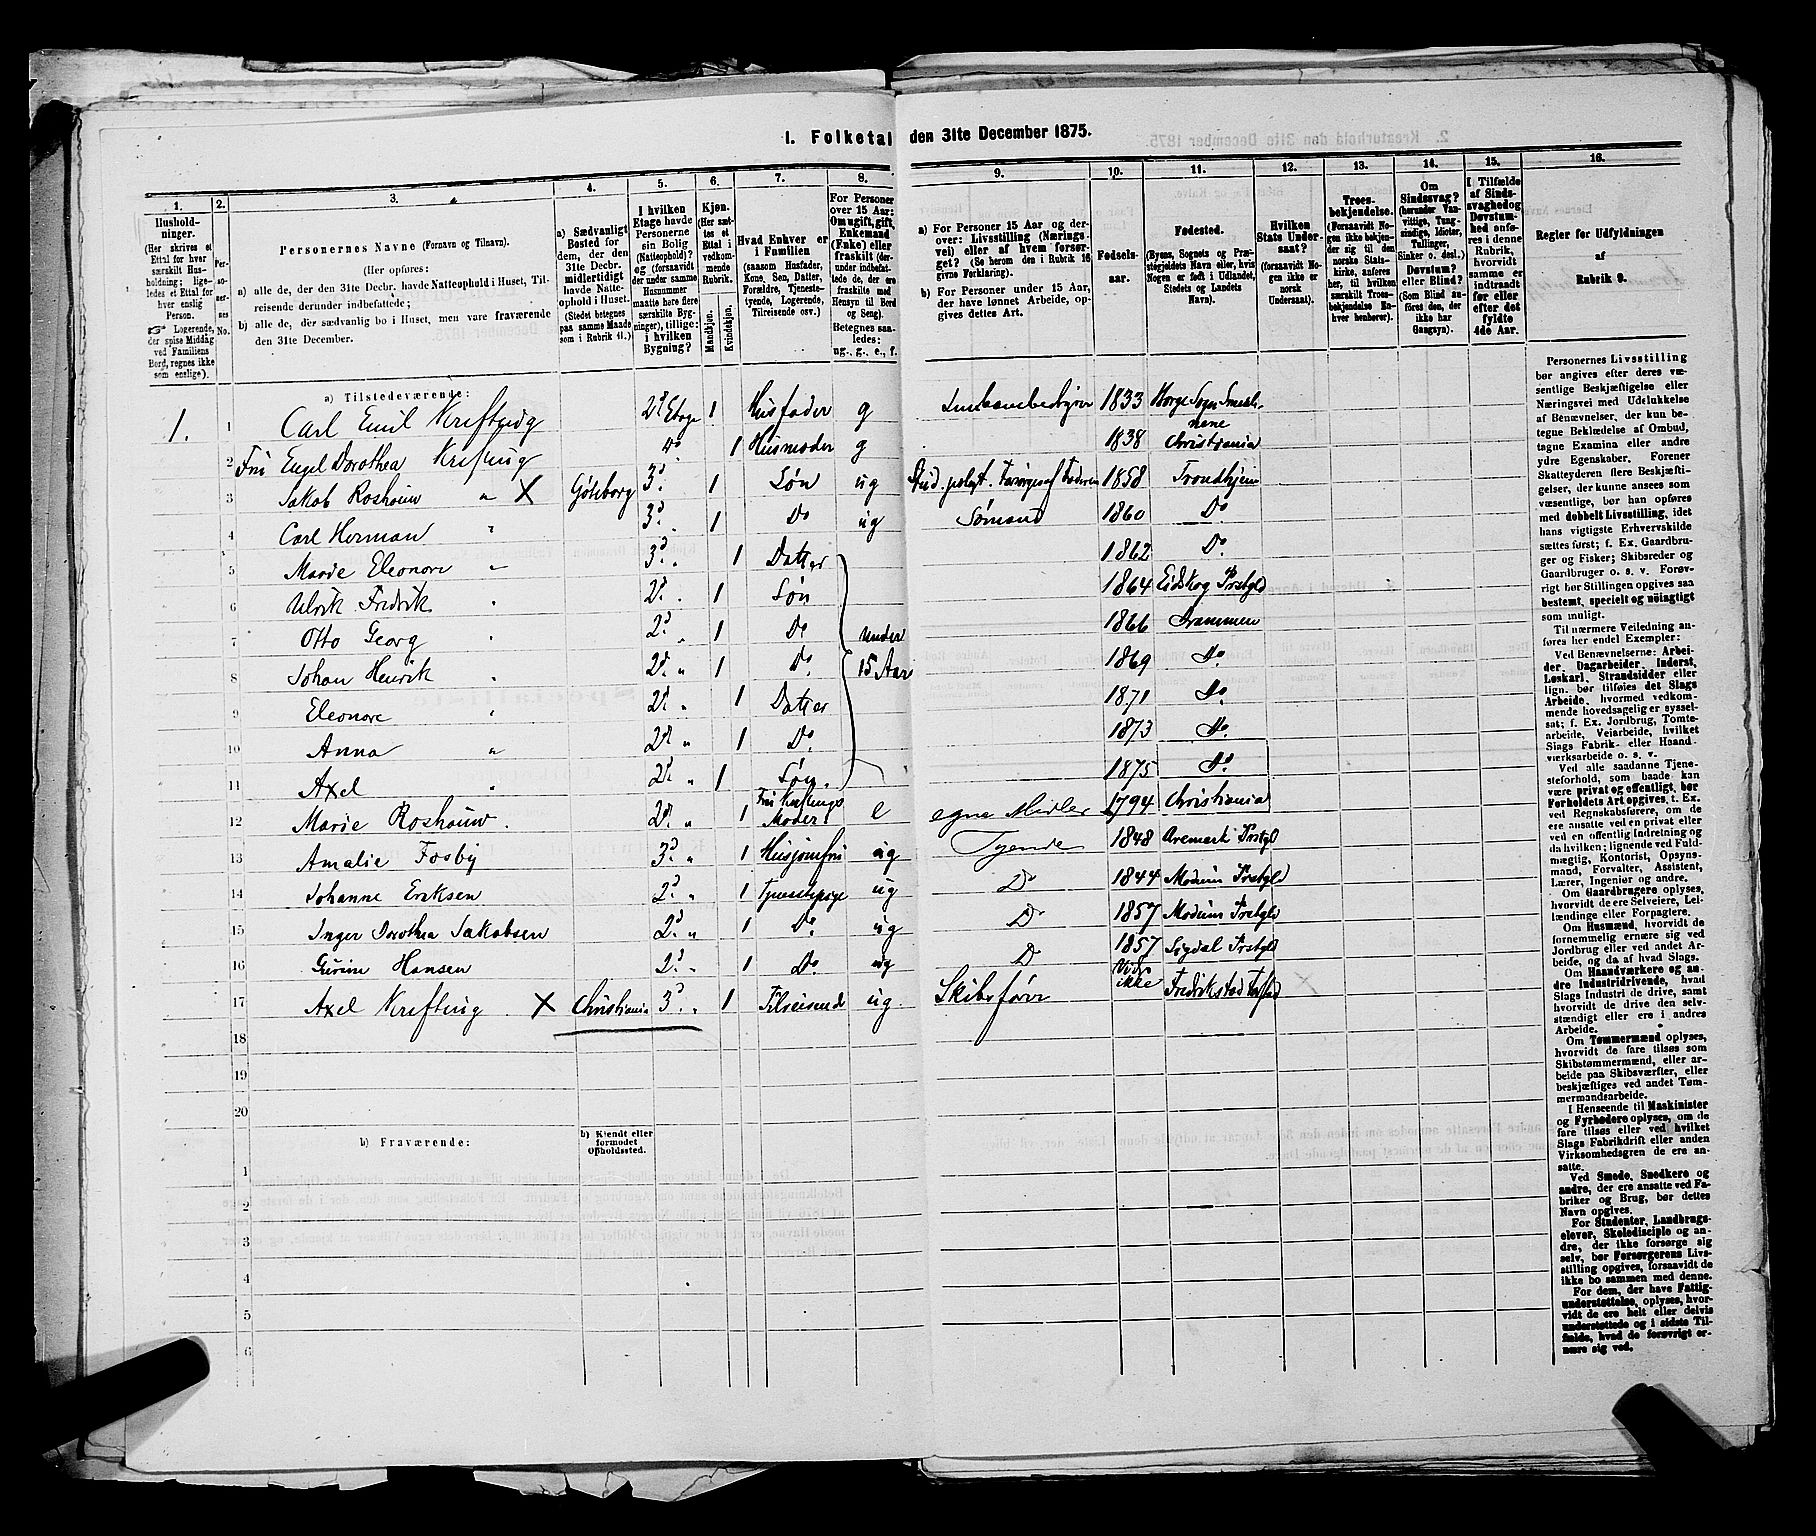 1. Folketal den 31te December 1875.
1.
Husholdninger.
(Her skrives et Ettal for hver særskilt Husholdning; ligeledes et Ettal for hver enslig Person.
☞ Logerende, der spise Middag ved Familiens Bord, regnes ikke som enslige).
2.
Personernes No.
3.
Personernes Navne (Fornavn og Tilnavn).
(Her opføres:
a) alle de, der den 31te Decbr. havde Natteophold i Huset, Tilreisende derunder indbefattede;
b) alle de, der sædvanlig bo i Huset, men vare fraværende den 31te December.
4.
a) Sædvanligt Bosted for dem, der den 31te Decbr. midlertidigt havde Natteophold i Huset. (Stedet betegnes paa samme Maade som i Rubrik 11.)
5.
I hvilken Etage havde Personerne sin Bolig (Natteophold)? og (forsaavidt der under samme Husnummer maatte høre flere særskilte Bygninger), tillige: i hvilken Bygning?
6.
Kjøn.
(Her sættes et Ettal i vedkommende Rubrik.
Mandkjøn.
Kvindekjøn.
7.
Hvad Enhver er i Familien
(saasom Husfader, Kone, Søn, Datter, Forældre, Tjenestetyende, Logerende, Tilreisende osv.)
8.
For Personer over 15 Aar: Om ugift, gift, Enkemand (Enke) eller fraskilt (derunder indbefattede de, der ere fraskilte med Hensyn til Bord og Seng).
Betegnes saaledes: ug., g., e., f.
9.
a) For Personer 15 Aar og derover: Livsstilling (Næringsvei) eller af hvem forsørget? (Se herom den i Rubrik 16 givne Forklaring).
b) For Personer under 15 Aar, der have lønnet Arbeide, opgives dettes Art.
10.
Fødselsaar.
11.
Fødested.
(Byens, Sognets og Præstegjeldets Navn eller, hvis Nogen er født i Udlandet, Stedets og Landets Navn).
12.
Hvilken Stats Undersaat?
(forsaavidt Nogen ikke er norsk Undersaat).
13.
Troesbekjendelse.
(Forsaavidt Nogen ikke bekjender sig til den norske Statskirke, anføres her, til hvilken særskilt Troesbekjendelse Enhver henhører).
14.
Om Sindssvag? (herunder Vanvittige, Tungsindige, Idioter, Tullinger, Sinker o. desl.) Døvstum? eller Blind? (Som Blind anføres den, der ikke har Gangsyn).
15.
I Tilfælde af Sindssvaghed og Døvstumhed anføres i denne Rubrik, hvorvidt samme er indtraadt før eller efter det fyldte 4de Aar.
16.
Regler for Udfyldningen
af
Rubrik 9.
a) Tilstedeværende:
1. 1 Carl Emil Krefting 2d Etage 1 Husfader g 1833 Norge Sogn
2 Fru Engel Dorothea Krefting Do 1 Husmoder g 1838 Christiania
3 Jakob Roshauw " X Göteborg 3d. 1 Søn ug Stud. polyt. Forsørges af Faderen 1858 Trondhjem
4 Carl Herman " 3d. 1 Do ug Sømand 1860 Do
5 Marie Eleonore " 3d. 1 Datter 1862 Do
6 Ulrik Fredrik " 2d. 1 Søn 1864 Eidskog Prstgld
7 Otto Georg " 2d. " 1 Do under 1866 Drammen
8 Johan Henrik " 2d. " 1 Do 15 Aar 1869 Do
9 Eleonore " 2d. " 1 Datter 1871 Do
10 Anna " 2d " 1 Do 1873 Do
11 Axel " 2d. " 1 Søn. 1875 Do
12 Marie Roshauw. 2d. " 1 Fru Kreftings Moder e egne Midler 1794 Christiania
13 Amalie Fosby 3d. " 1 Husjomfru ug Tyende 1848 Aremark Prstgld
14 Johanne Eriksen 2d. " 1 Tjenestepige ug Do 1844 Modum Prstgld
15 Inger Dorothea Jakobsen 2d. " 1 Do. ug Do 1857 Modum Prstgld
16 Gurine Hansen 2d. " 1 Do. ug Do 1857 Sigdal Prstgld
17 Axel Krefting X Christiania 3d. " 1 Tilreisende ug. Skibsfører Vides ikke Fredrikstad
18
19
20
b) Fraværende:
b) Kjendt eller formodet Opholdssted.
1
2
3
4
5
6
Personernes Livsstilling
bør angives efter deres væ-
sentlige Beskjæftigelse eller
Næringsvei med Udelukkelse
af Benævnelser, der kun be-
tegne Beklædelse af Ombud,
tagne Examina eller andre
ydre Egenskaber. Forener
Skatteyderen flere Beskjæfti-
gelser, der kunne ansees som
væsentlige, bør han opføres
med dobbelt Livsstilling, idet
hans vigtigste Erhvervskilde
sættes først; f. Ex. Gaardbru-
ger og Fisker; Skibsreder og
Gaardbruger o. s. v. Forøv-
rigt bør Stillingen opgives saa
bestemt, specielt og nöiagtigt
som muligt.
Til nærmere Veiledning an-
føres her endel Exempler:
Ved Benævnelserne: Arbei-
der, Dagarbeider, Inderst,
Løskarl, Strandsidder eller
lign. bør tilføies det Slags
Arbeide, hvormed vedkom-
mende hovedsagelig er syssel-
sat; f. Ex. Jordbrug, Tomte-
arbeide, Veiarbeide, hvilket
Slags Fabrik- eller Haand-
værksarbeide o. s. v.
Ved alle saadanne Tjene-
steforhold, som baade kan
være privat og offentligt, bør
Forholdets Art opgives, t. Ex.
ved Regnskabsførere, om de
ere ansatte ved en privat eller
ved en offentlig Indretning og
da hvilken; lignende ved Fuld-
mægtig, Kontorist, Opsyns-
mand, Forvalter, Assistent,
Lærer, Ingeniør og andre.
Om Gaardbrugere oplyses,
hvorvidt de ere Selveiere, Lei-
lændinge eller Forpagtere.
Om Husmænd, hvorvidt de
fornemmelig ernære sig ved
Jordbrug eller ved andet Ar-
beide, og da af hvad Slags.
Om Haandværkere og an-
dre Industridrivende, hvad
Slags Industri de drive, samt
hvorvidt de drive den selv-
stændigt eller ere i andres
Arbeide.
Om Tømmermænd oplyses,
hvorvidt de fare tilsøs som
Skibstømmermænd, eller ar-
beide paa Skibsværfter, eller
beskjæftiges ved andet Tøm-
mermandsarbeide.
I Henseende til Maskinister
og Fyrbødere oplyses, om de
fare tilsøs eller ved hvilket
Slags Fabrikdrift eller anden
Virksomhedsgren de ere an-
satte.
Ved Smede, Snedkere og
andre, der ere ansatte ved Fa-
briker og Brug, bør dettes
Navn opgives.
For Studenter, Landbrugs-
elever, Skoledisciple og an-
dre, der ikke forsørge sig
selv, bør Forsørgerens Livs-
stilling opgives, forsaavidt de
ikke bo sammen med denne.
For dem, der have Fattig-
understøttelse, oplyses, hvor-
vidt de ere helt eller delvis
understøttede og i sidste Til-
fælde, hvad de forøvrigt er-
nære sig ved.